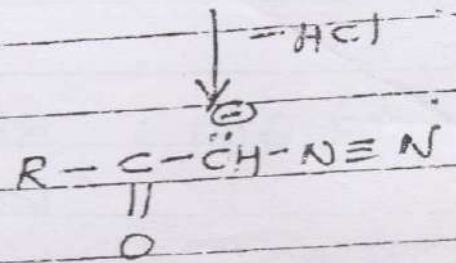 - HCl
⊖
R - C - C̈H - N ≡ N
||
O